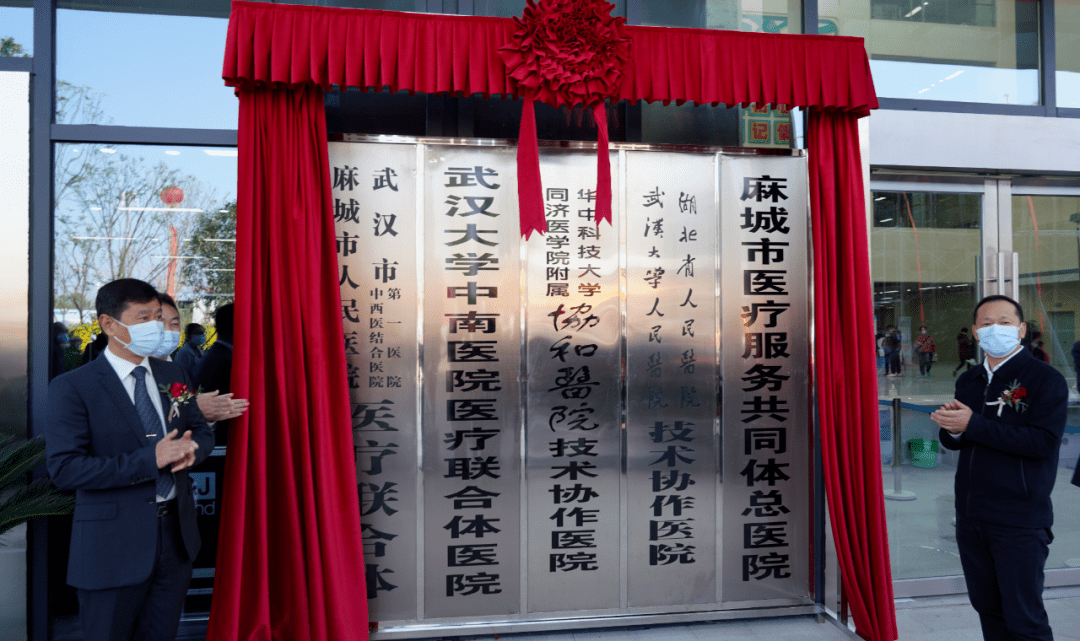 麻城市医疗服务共同体总医院
湖北省人民醫院
武漢大學人民醫院
技术协作医院
华中科技大学
同济医学院附属
協和醫院技术协作医院
武汉大学中南医院医疗联合体医院
武汉市第一医院
中西医结合医院
麻城市人民医院
医疗联合体